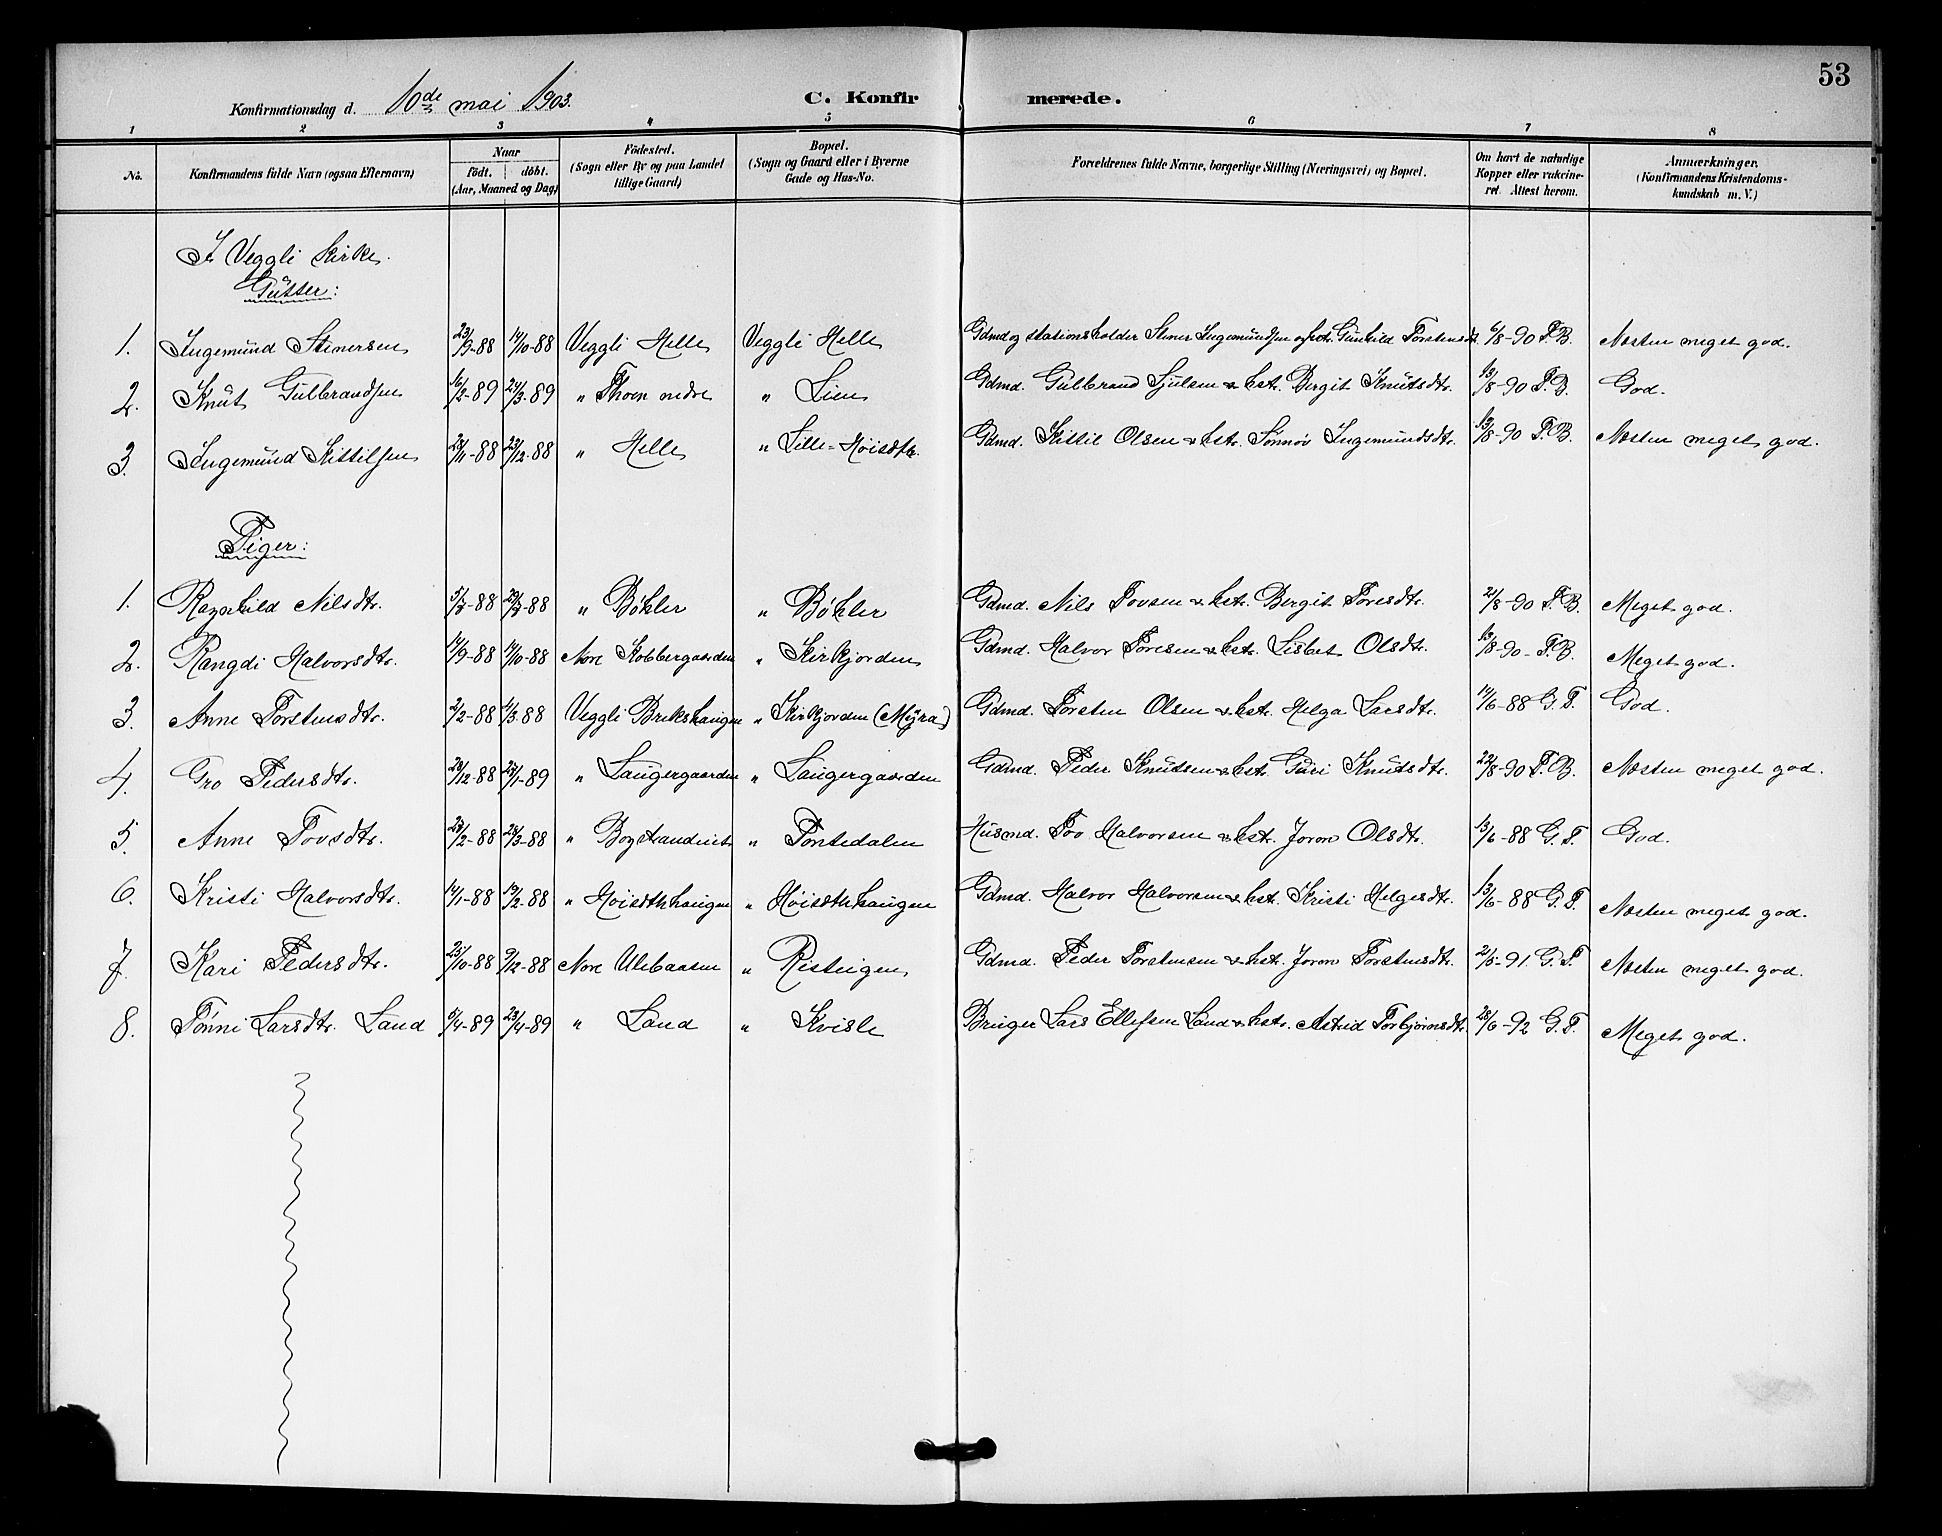 53
Konfirmationsdag d. 10de mai 1903.
C. Konfirmerede.
1 2 3 4 5 6 7 8
No. Konfirmandens fulde Navn (ogsaa Efternavn) Naar födt. döbt. (Aar, Maaned og Dag) Födested. (Sogn eller By og paa Landet tillige Gaard) Bopæl. (Sogn og Gaard eller i Byerne Gade og Hus-No. Forældrenes fulde Navne, borgerlige Stilling (Næringsvei) og Bopæl. Om havt de naturlige Kopper eller vakcineret. Attest herom. Anmærkninger. (Konfirmandens Kristendomskundskab m. V.)
I Veggli Kirke.
Gutter:
1. Ingemund Stenersen 23/9-88 14/10-88 Veggli Helle Veggli Helle Gdmd og stationsholder Stener Ingemundsen og hstr. Gunhild Torstensdtr. 6/8-90 T.B. Næsten meget god.
2. Knut Gulbrandsen 16/2-89 24/3-89 " Thoen nedre " Lien Gdmd. Gulbrand Sjulsen & hstr. Bergit Knutsdtr. 13/8-90 T.B. God.
3. Ingemund Kittilsen 28/11-88 23/12-88 " Helle " Lille-Höisæth. Gdmd. Kittil Olsen & hstr. Sönnöv Ingemundsdtr. 13/8-90 T.B. Næsten meget god.
Piger:
1. Ragnhild Nilsdtr. 5/3-88 29/3-88 " Bökler " Bökler Gdmd. Nils Tovsen & hstr. Bergit Toresdtr. 21/8-90 T.B. Meget god.
2. Rangdi Halvorsdtr. 14/9-88 14/10-88 Nore Kobbergaarden " Kirkjorden Gdmd. Halvor Toresen & hstr. Lisbet Olsdtr. 13/8-90 T.B. Meget god.
3. Anne Torstensdtr. 2/2-88 4/3-88 Veggli Brekshaugen " Kirkjorden (Myra) Gdmd. Torsten Olsen & hstr. Helga Larsdtr. 14/6-88 G.T. God.
4. Gro Pedersdtr. 28/12-88 27/1-89 " Laugergaarden " Laugergaarden Gdmd. Peder Knutsen & hstr. Guri Knutsdtr. 22/8-90 T.B. Næsten meget god.
5. Anne Tovsdtr. 23/2-88 28/3-88 " " Tontedalen Husmd. Tov Halvorsen & hstr. Joron Olsdtr. 13/6-88 G.T. God.
6. Kristi Halvorsdtr. 14/1-88 19/2-88 " Höisæthhaugen " Höisæthhaugen Gdmd. Halvor Halvorsen & hstr. Kristi Helgesdtr. 13/6-88 G.T. Næsten meget god.
7. Kari Pedersdtr. 25/10-88 9/12-88 Nore Ulebaasen " Risteigen Gdmd. Peder Torstensen & hstr. Joron Torstensdtr. 2/5-91 G.T. Næsten meget god.
8. Tönni Larsdtr. Land 6/4-89 23/4-89 " Land " Kvisle Bruger Lars Ellefsen Land & hstr. Astrid Torbjörnsdtr. 28/6-92 G.T. Meget god.